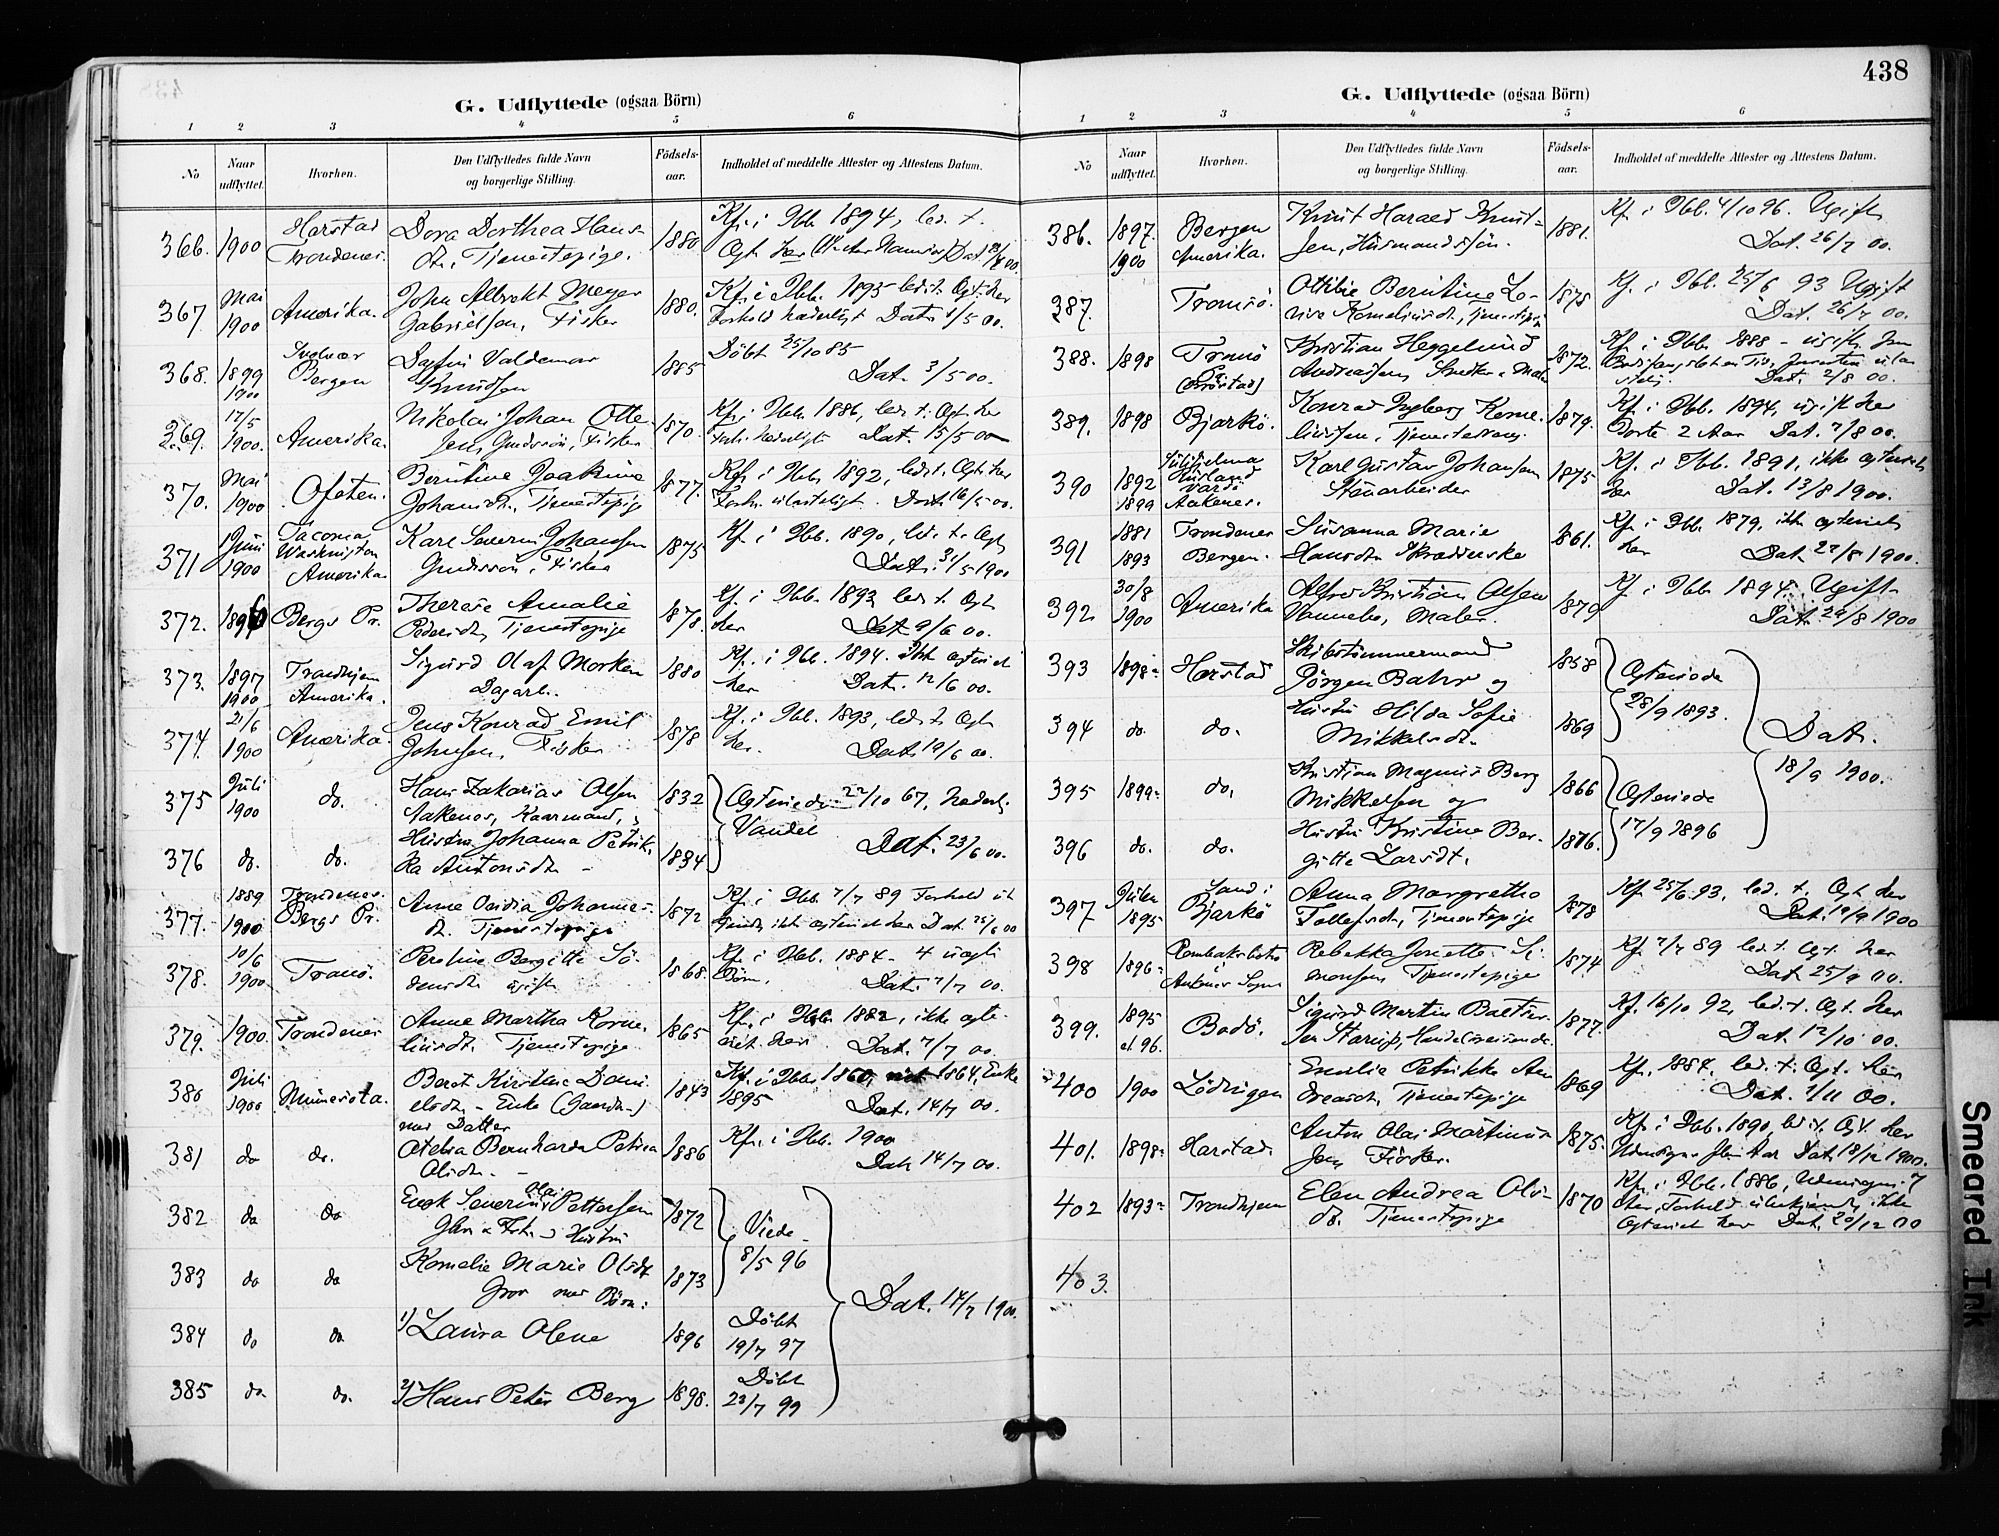 438
G. Udflyttede (ogsaa Börn)
1 2 3 4 5 6
No
Naar udflyttet.
Hvorhen.
Den Udflyttedes fulde Navn og borgerlige Stilling.
Födsels-aar.
Indholdet af meddelte Attester og Attestens Datum.
366. 1900 Harstad Dora Dorthea Hans- 1880 Kf. i Ibb. 1894, led. t.
Trondenes. dtr., Tjenestepige. Ægt. her
367. Mai Amerika. Johan Albrekt Meyer 1880. Kf. i Ibb. 1895 led. t. Ægt. her
1900 Gabrielsen, Fisker Forhold hæderligt Dat. 1/5 00.
368. 1899 Svolvær Valdemar 1885 Döbt 25/10 85
1900 Bergen Knudsen Dat. 3/5 00.
269. 17/5 Amerika. Nikolai Johan Otte- 1870. Kf. i Ibb. 1886, led. t. Ægt. her
1900. Fisker Forh. hæderligt Dat. 15/5 00
370. Mai Ofoten. Berntine Joakime 1877. Kf. i Ibb. 1892, led. t. Ægt. her
1900 Johansdtr., Tjenestepige Forh. ulasteligt. Dat. 16/5 00.
371 Juni Tacoma, Karl Severin Johansen 1875 Kf. i Ibb. 1890, led. t. Ægt.
1900 Washington Fisker Dat. 31/5 1900
Amerika
372. 1896 Bergs Pr. Therese Amalie 1878. Kf. i Ibb. 1893 led. t. Ægt.
Pedersdtr, Tjenestepige her Dat 9/6 00.
373. 1897 Trondhjem Sigurd Olaf Morken 1880 Kf. i Ibb. 1894. Ikke ægteviet
1900 Amerika. Dagarb. her Dat. 12/6 00.
374. 21/6 Amerika. Jens Konrad Emil 1878 Kf. i Ibb. 1893, led. t. Ægt.
1900 Johnsen, Fisker her. Dat. 19/6 00.
375 Juli do. Hans Zakarias Olsen 1832 Ægteviede 22/10 67, hæderl.
1900 Aakenes, Kaarmand, Vandel Dat. 23/6 00.
376 do. do. Hustru Johanna Petrik- 1834
ka Antonsdtr
377. 1889 Trondenes. Anne Johannes- 1872 Kf. i Ibb. 7/7 89 Forhold
1900 Bergs Pr. dtr. Tjenestepige ikke ægteviet her Dat. 25/6 00
378. 10/6 Tranö. Peroline Bergitte 1868. Kf. i Ibb. 1884 - 4 uægte
1900 ugift Börn. Dat. 7/7 00.
379. 1900. Trondenes Anne Martha Korne- 1865 Kf. i Ibb. 1882, ikke ægte-
liusdt. Tjenestepige viet her. Dat. 7/7 00.
380 Juli Minnesota. Beret Kirstine Dani- 1843 Kf. i Ibb. 1860, 1864, Enke
1900 elsdtr - Enke 1895 Dat. 14/7 00.
med Datter
381 do do. Bernharda Petrea 1886 Kf. i Ibb. 1900
Olsdtr. - Dat. 14/7 00.
382 do do Severin Olai Pettersen 1872 Viede
Hustru 8/5 96
383 do do Kornelie Marie Olsdt 1873
med Börn:
Dat. 14/7 1900.
384 do do 1) Laura Olene 1896 Döbt
19/7 97
385 do do. 2) Hans Peter Berg 1898. Döbt
23/7 99
G. Udflyttede (ogsaa Börn)
1 2 3 4 5 6
No
Naar udflyttet.
Hvorhen.
Den Udflyttedes fulde Navn og borgerlige Stilling.
Födsels-aar.
Indholdet af meddelte Attester og Attestens Datum.
386. 1897. Bergen Knut Harald Knut- 1881. Kf. i Ibb. 4/10 96. Ugift
1900 Amerika. sen, Husmandssön. Dat. 26/7 00.
387. Tromsö. Ottilie Berntine Lo- 1875 Kf. i Ibb. 25/6 93 Ugift
vise Korneliusdt., Tjenestepige Dat. 26/7 00.
388. 1898 Tromsö Kristian Heggelund 1872. Kf. i Ibb. 1888 - ugift.
Andreassen, Snedker Dat. 2/8 00.
389. 1898 Bjarkö. Konrad Ingberg Korne- 1879. Kf. i Ibb. 1894, ugift her
liussen, Tjenestedreng. Borte 2 Aar Dat. 7/8 00.
390 1892 Sulitjelma Karl Gustav Johansen 1875 Kf. i Ibb. 1891, ikke ægteviet
1899 Vardö Aakenes. Stenarbeider her Dat. 13/8 1900.
391 1881 Trondenes Susanna Marie 1861. Kf. i Ibb. 1879, ikke ægteviet
1893 Bergen. Hansdtr Skrædderske her Dat. 27/8 1900.
392 30/8 Amerika Alfred Kristian Olsen 1879 Kf. i Ibb 1894. Ugift
1900 Vannebo, Maler. Dat. 29/8 1900
393 1898 Harstad Skibstömmermand 1858 Ægteviede
Jörgen Bahr og 28/9 1893.
394 do. do. Hustru Hilda Sofie 1869
Mikkelsdtr. Dat.
395 1899 do. Kristian Magnus Berg 1866 18/9 1900.
Mikkelsen og Ægteviede
396 do. do. Hustru Kristine Ber- 1876. 17/9 1896
gitte Larsdt.
397 Julen Sand i Anna Margrethe 1878 Kf. 25/6 93, led. t. Ægt. her
1895 Bjarkö Tollefsdt., Tjenestepige Dat. 19/9 1900
398 1896 Rombaksbotn Rebekka Jonette Si- 1874 Kf. 7/7 89 led. t. Ægt. her
Ankenes Sogn monsen, Tjenestepige Dat. 25/9 00.
399. 1895 Bodö. Sigurd Martin Baltzer- 1877. Kf. 16/10 92, led. t. Ægt. her
el. 96. sen Starup, Dat. 12/10 00.
400 1900 Lödingen Emelie Petrikke An- 1869 Kf. 1884. led. t. Ægt. her
dreasdt. Tjenestepige Dat. 1/11 00.
401. 1898 Harstad. Anton Olai Martinus- 1875. Kf. i Ibb. 1890, led. t. Ægt. her
sen, Fisker. Udensogns Aar Dat. 18/12 1900.
402 1893 Trondhjem Elen Andrea Ols- 1870 Kf. i Ibb. 1886, Udensogns 7
dt. Tjenestepige Aar, Forhold ubekjendt, ikke
Ægteviet her Dat. 20/12 00
403.
Smeared Ink